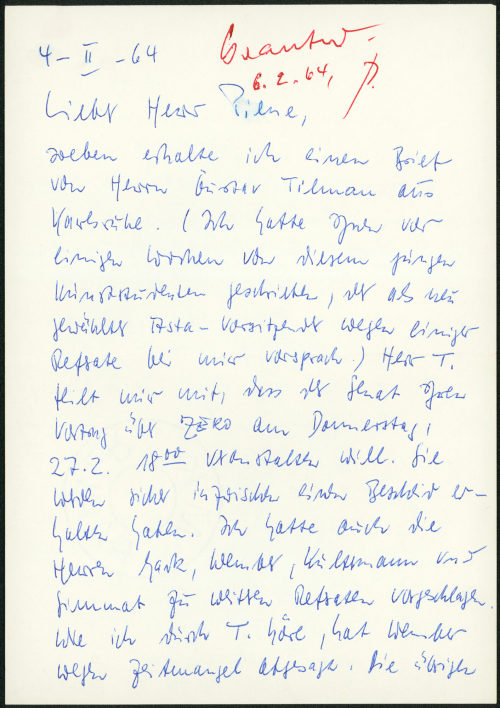 4-II-64
Beantw.
6.2.64, P.
Lieber Herr Piene,
soeben erhalte ich einen Brief
von Herrn Gustav Tilman aus
Karlsruhe. (Ich hatte Ihnen vor
einigen Wochen von diesem jungen
Kunststudenten geschrieben, der als neu
gewählter Asta-Vorsitzender wegen einiger
Referate bei mir vorsprach) Herr T.
teilt mir mit, dass der Senat Ihren
Vortrag über ZERO am Donnerstag,
27.2. 18⁰⁰ veranstalten will. Sie
werden sicher inzwischen einen Bescheid er-
halten haben. Ich hatte auch die
Herren Mack, Wember, Kultermann und
Simmat zu weiteren Referaten vorgeschlagen.
Wie ich durch T. höre, hat Wember
wegen Zeitmangel abgesagt. Die übrigen